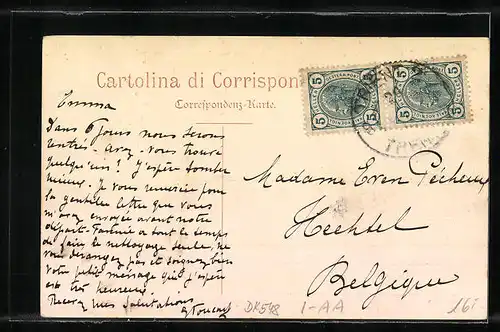 Cartolina di Corrispon
Correspondenz-Karte.
5 5 5 5
5 5 5 5
Emma
Dans 6 jours nous serons
rentrés. avez-vous trouvé
quelqu'un? J'espère tomber
mieux. Je vous remercie pour
la gentille lettre que vous
m'avez envoyée avant notre
départ. a tout le temps
de faire le nettoyage seule, ne
vous dérangez pas et soignez bien
votre petit ménage qui j'espère
est très heureux.
Recevez mes salutations
Madame Even Pécheux
Hechtel
Belgique
DK548 I-AA 16i